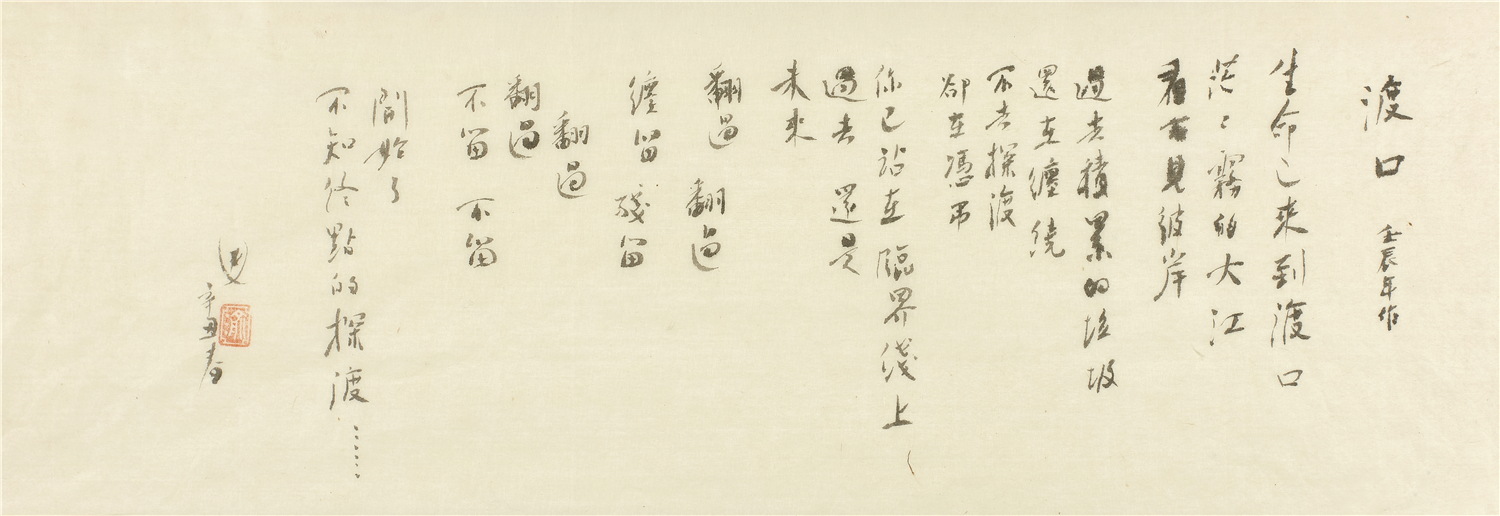 渡口
壬辰年作
生命已來到渡口
茫々霧的大江
看不見彼岸
過去積累的垃圾
還在纏繞
不去探渡
卻在憑弔
你已站在臨界线上
過去 還是
未來
翻過 翻過
纏留 殘留
翻過
翻過
不留 不留
開始了
不知終點的探渡……
辛丑春